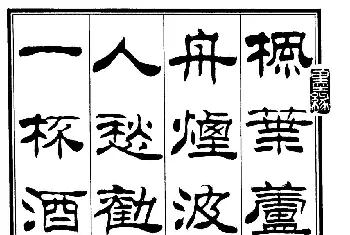 楓葉蘆
舟煙波
人愁勸
一杯酒